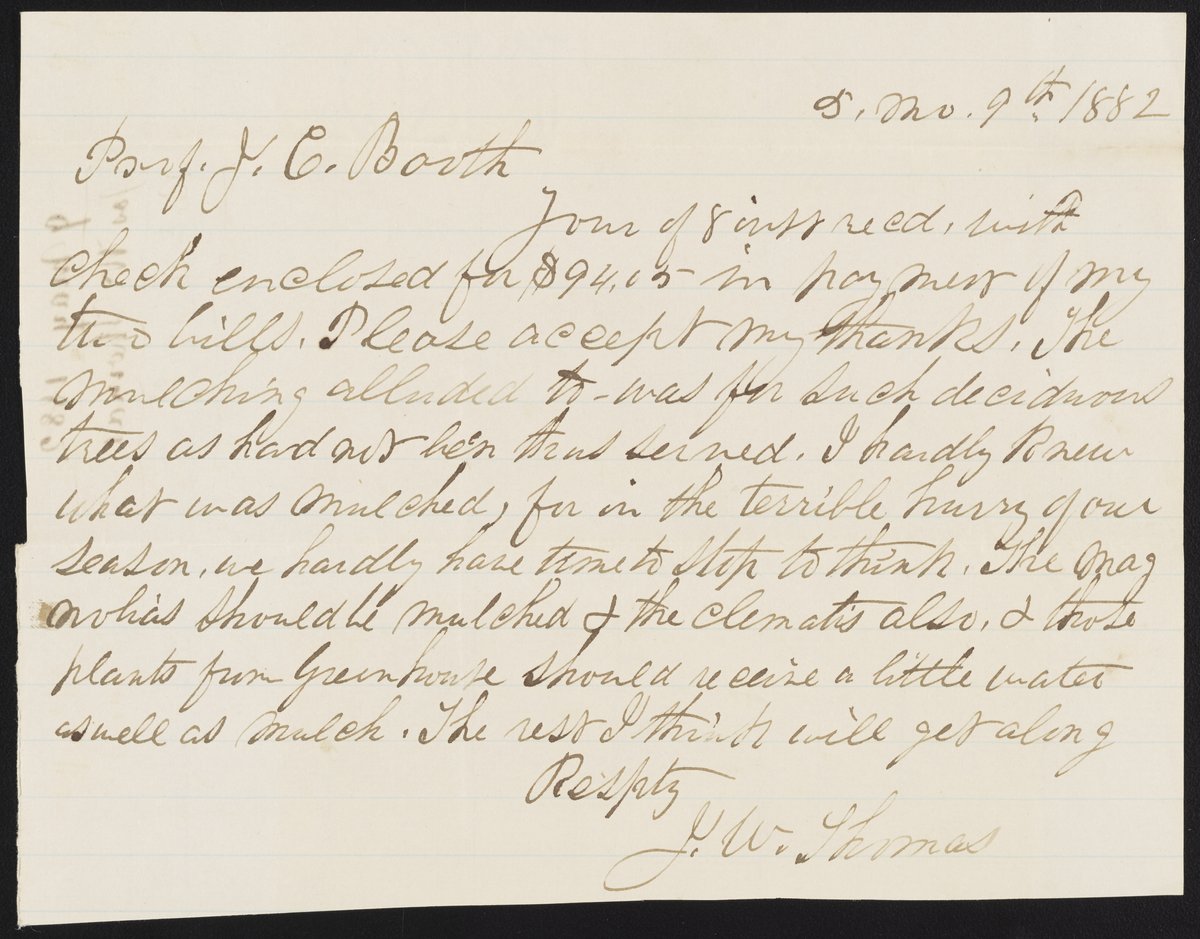 5. Mo. 9th. 1882
Prof. J. C. Booth
Your of 8 inst recd, with
check enclosed for $94,05 in payment of my
two bills. Please accept my thanks. The
mulching alluded to - was for such deciduous
trees as had not ben thus served. I hardly knew
what was mulched, for in the terrible hurry of our
season, we hardly have time to stop to think. The mag
nolias should be mulched & the clematis also, & those
plants from Greenhouse should receive a little water
as well as mulch. The rest I think will get along
Respty
J. W. Thomas